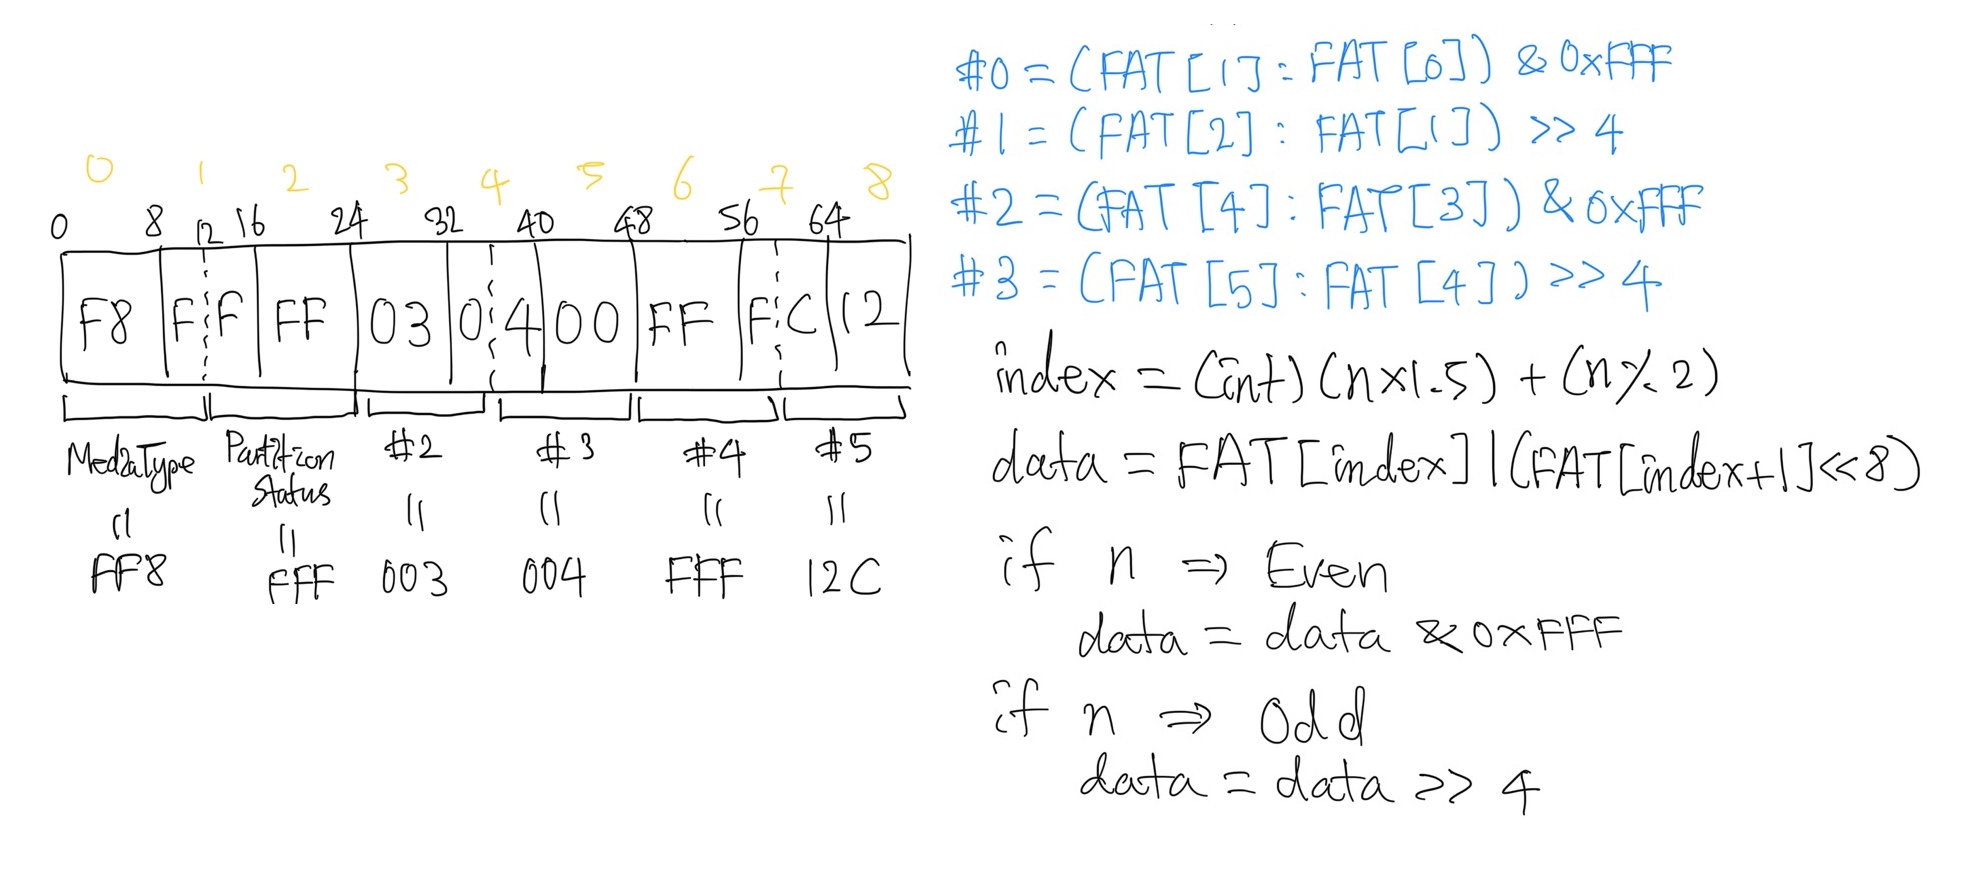 0 1 2 3 4 5 6 7 8
0 8 12 16 24 32 40 48 56 64
F8 F F FF 03 0 4 00 FF F C 12
MediaType Partition Status #2 #3 #4 #5
= = = = = =
FF8 FFF 003 004 FFF 12C
#0 = (FAT[1] : FAT[0]) & 0xFFF
#1 = (FAT[2] : FAT[1]) >> 4
#2 = (FAT[4] : FAT[3]) & 0xFFF
#3 = (FAT[5] : FAT[4]) >> 4
index = (int)(n×1.5) + (n%2)
data = FAT[index] | (FAT[index+1]<<8)
if n ⇒ Even
data = data & 0xFFF
if n ⇒ Odd
data = data >> 4